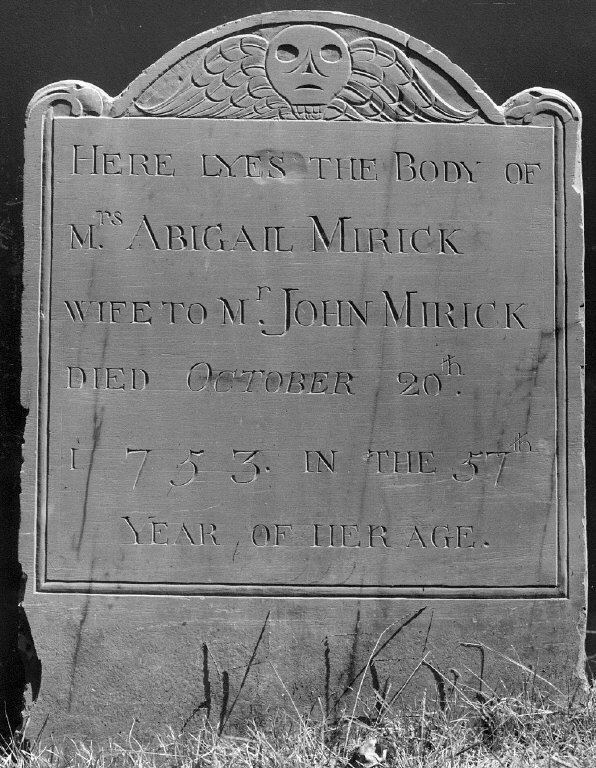 HERE LYES THE BODY OF
M.rs ABIGAIL MIRICK
WIFE TO M.r JOHN MIRICK
DIED OCTOBER 20th.
1753. IN THE 57th
YEAR OF HER AGE.